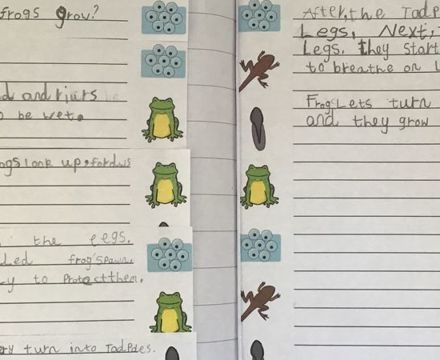 frogs grow?
d and rivirs
o be wet.
ogs look up, for
the eggs.
lled frog spawn.
y to Protect them.
ery turn into Tadpoles.
After, the Tadp
Legs, Next,
Legs. they start
to breathe on l
FrogLets turn
and they grow